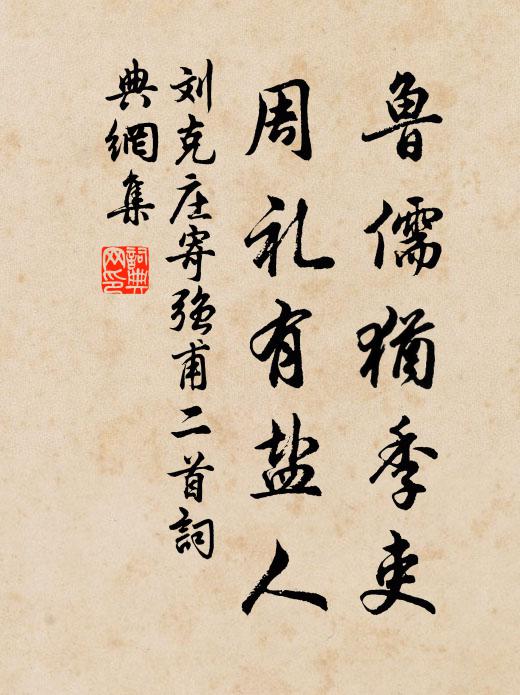 鲁儒犹季吏
周礼有盐人
刘克庄寄强甫二首詞
典網集
詞典网印